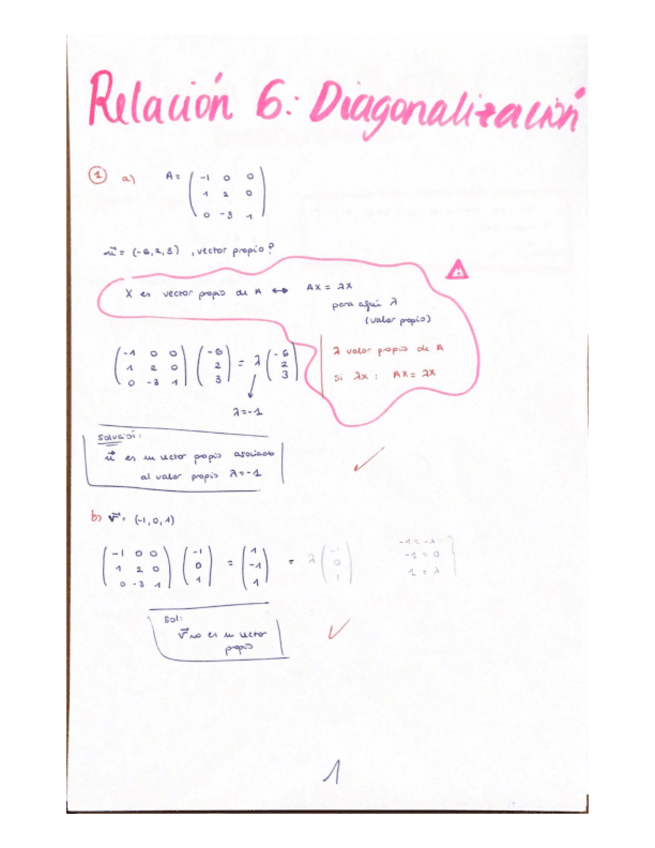 Relación 6: Diagonalización
1 a) A = ( -1 0 0
1 2 0
0 -3 1 )
u⃗ = (-6, 2, 3) , vector propio?
X es vector propio de A ↔ AX = λX
para algún λ
(valor propio)
λ valor propio de A
si λX : AX = λX
( -1 0 0
1 2 0
0 -3 1 ) ( -6
2
3 ) = λ ( -6
2
3 )
λ = -1
Solución:
u⃗ es un vector propio asociado
al valor propio λ = -1
b) v⃗ = (-1, 0, 1)
( -1 0 0
1 2 0
0 -3 1 ) ( -1
0
1 ) = ( 1
-1
1 ) = λ ( -1
0
1 )
-1 = -λ
-1 = 0
1 = λ
Sol:
v⃗ no es un vector
propio
1